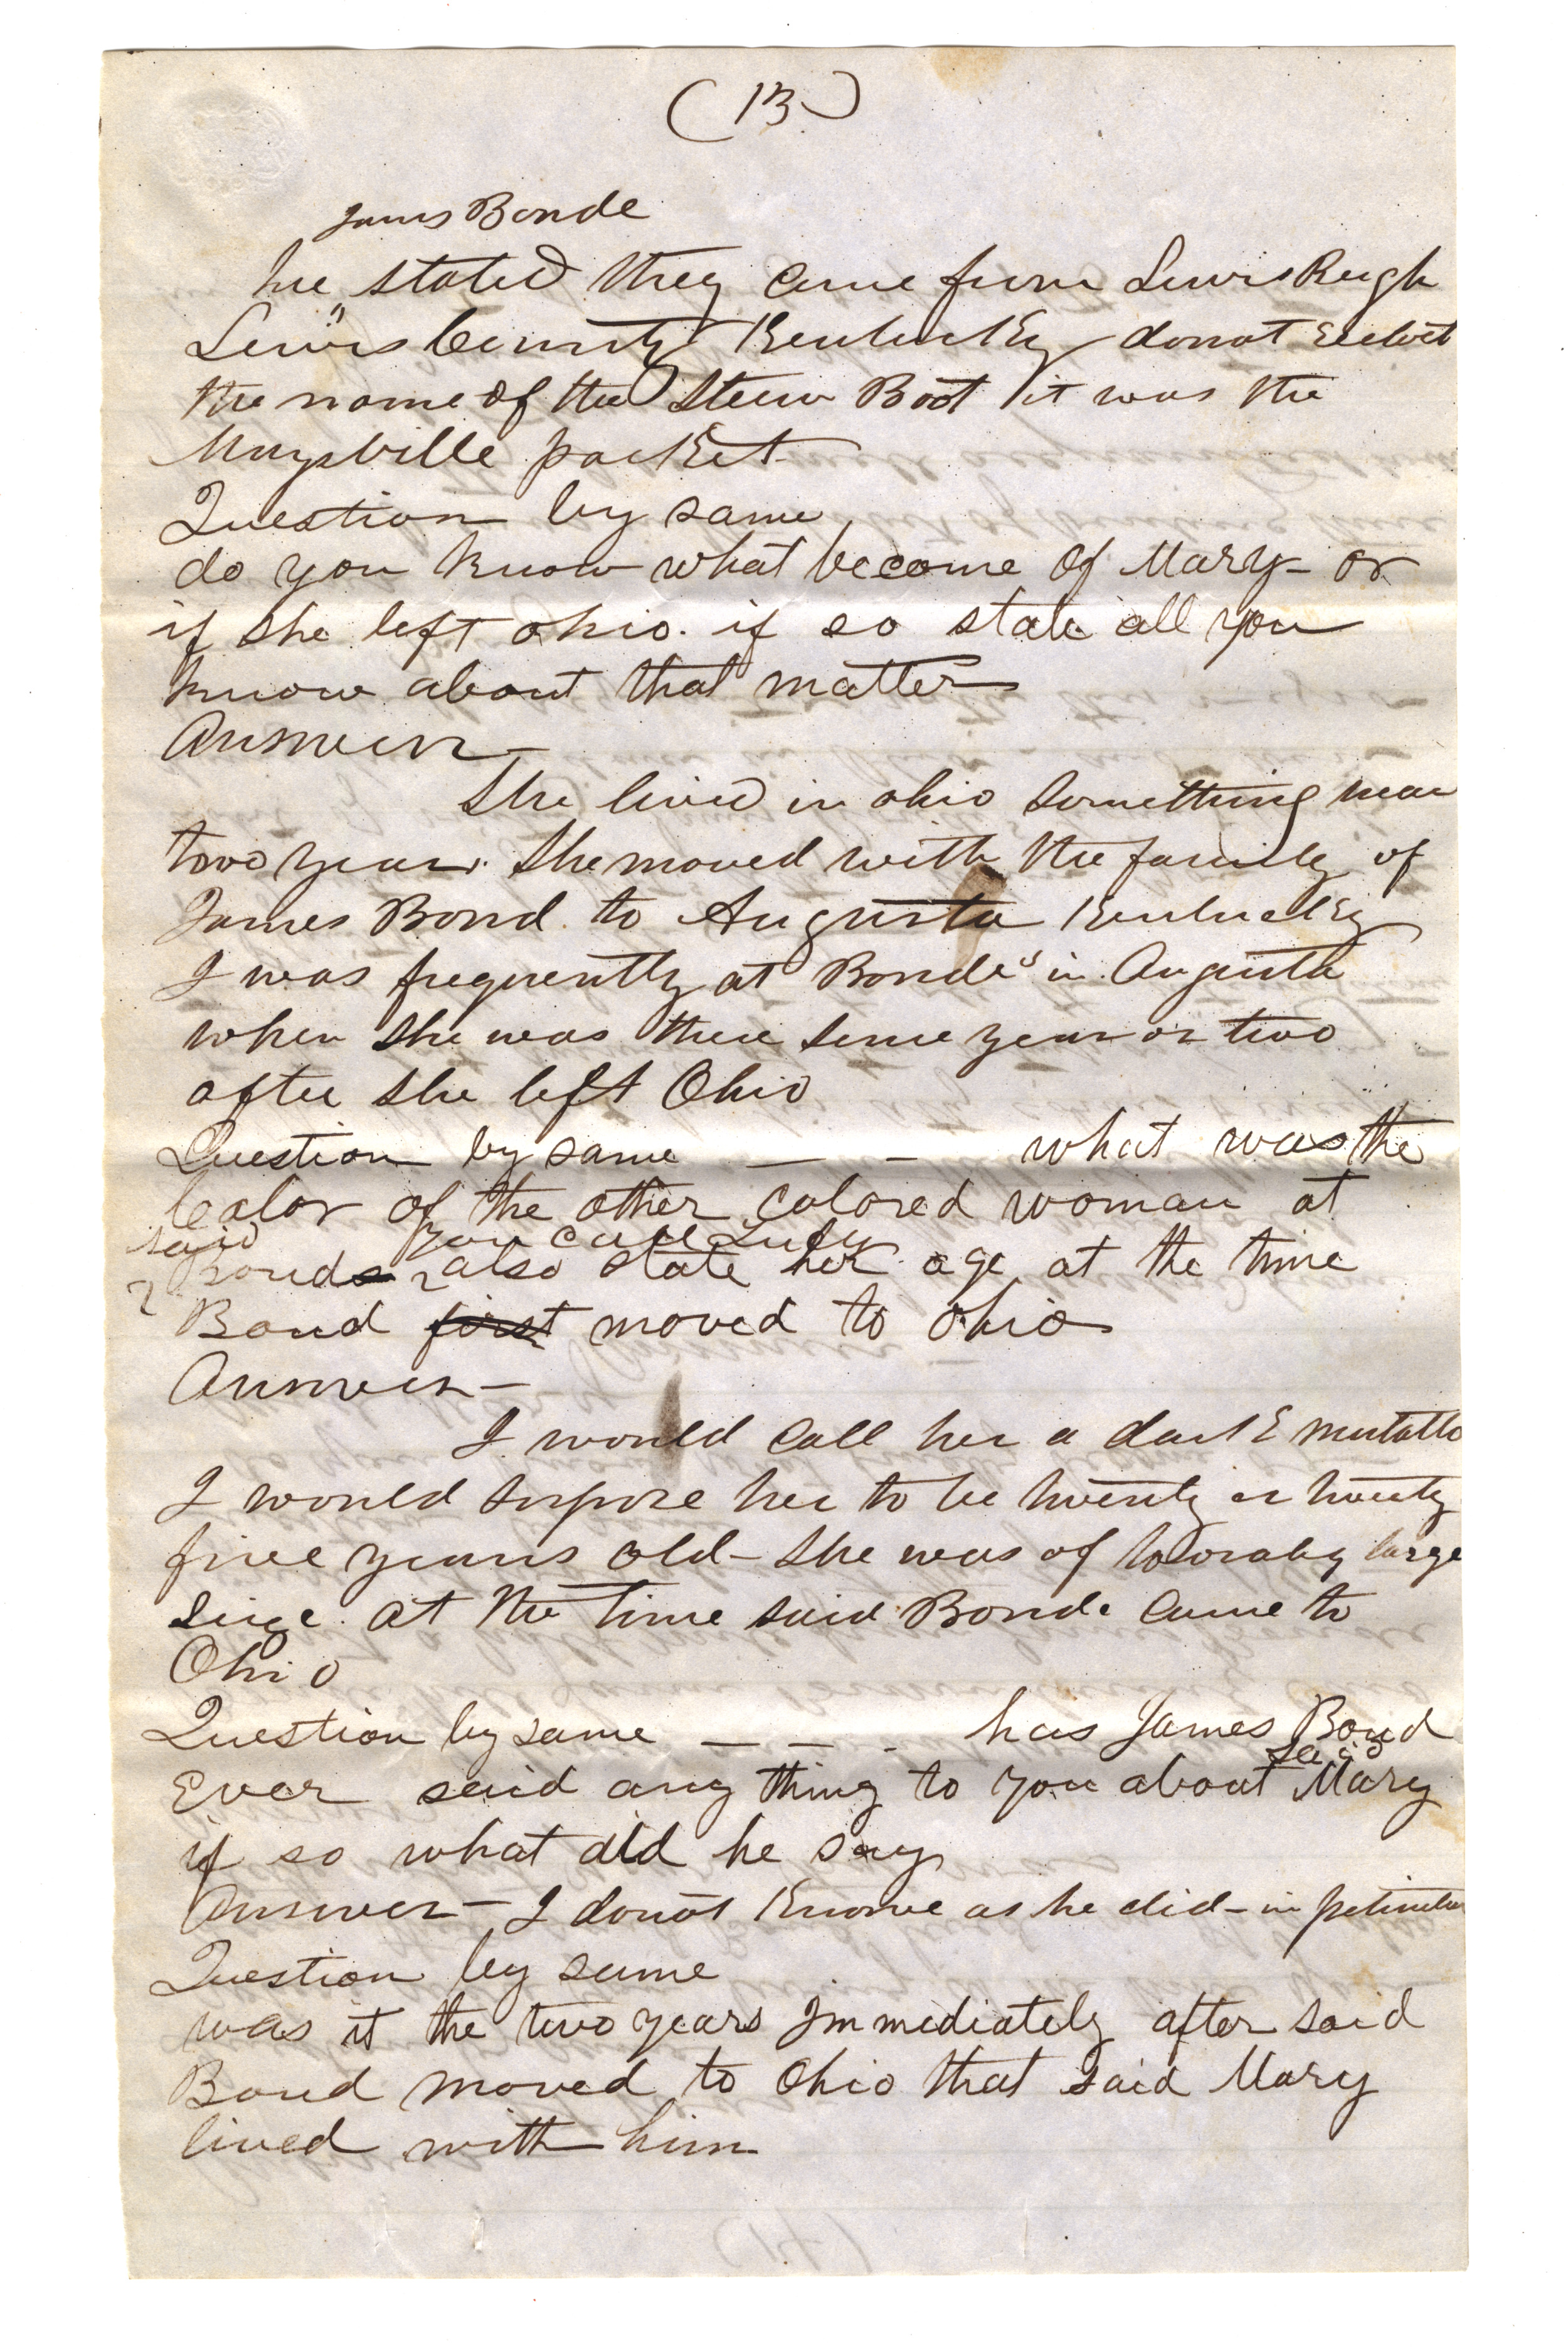 (13)
James Bonde
he stated they came from Lewis Reigh
Lewis County Kentucky do not
the name of the Steem Boat it was the
Maysville packet
Question by same
do you know what become of Mary or
if she left ohio. if so state all you
know about that matter
Answer
She lived in ohio something near
two years. She moved with the family of
James Bond to Augusta Kentucky
I was frequently at Bonde's in Augusta
when she was there some year or two
after she left Ohio
Question by same — – what was the
Color of the other Colored woman at
said you call Lucy
Bonds also state her age at the time
Bond first moved to ohio
Answer –
I would call her a dark mulatto
I would supose her to be twenty or twenty
five years old – She was of toloraby large
Size at the time said Bonde came to
Ohio
Question by same — – - has James Bond
said
Ever said any thing to you about Mary
if so what did he say
Answer – I donot Knowe as he did – in
Question by same
was it the two years immediately after said
Bond moved to Ohio that said Mary
lived with him